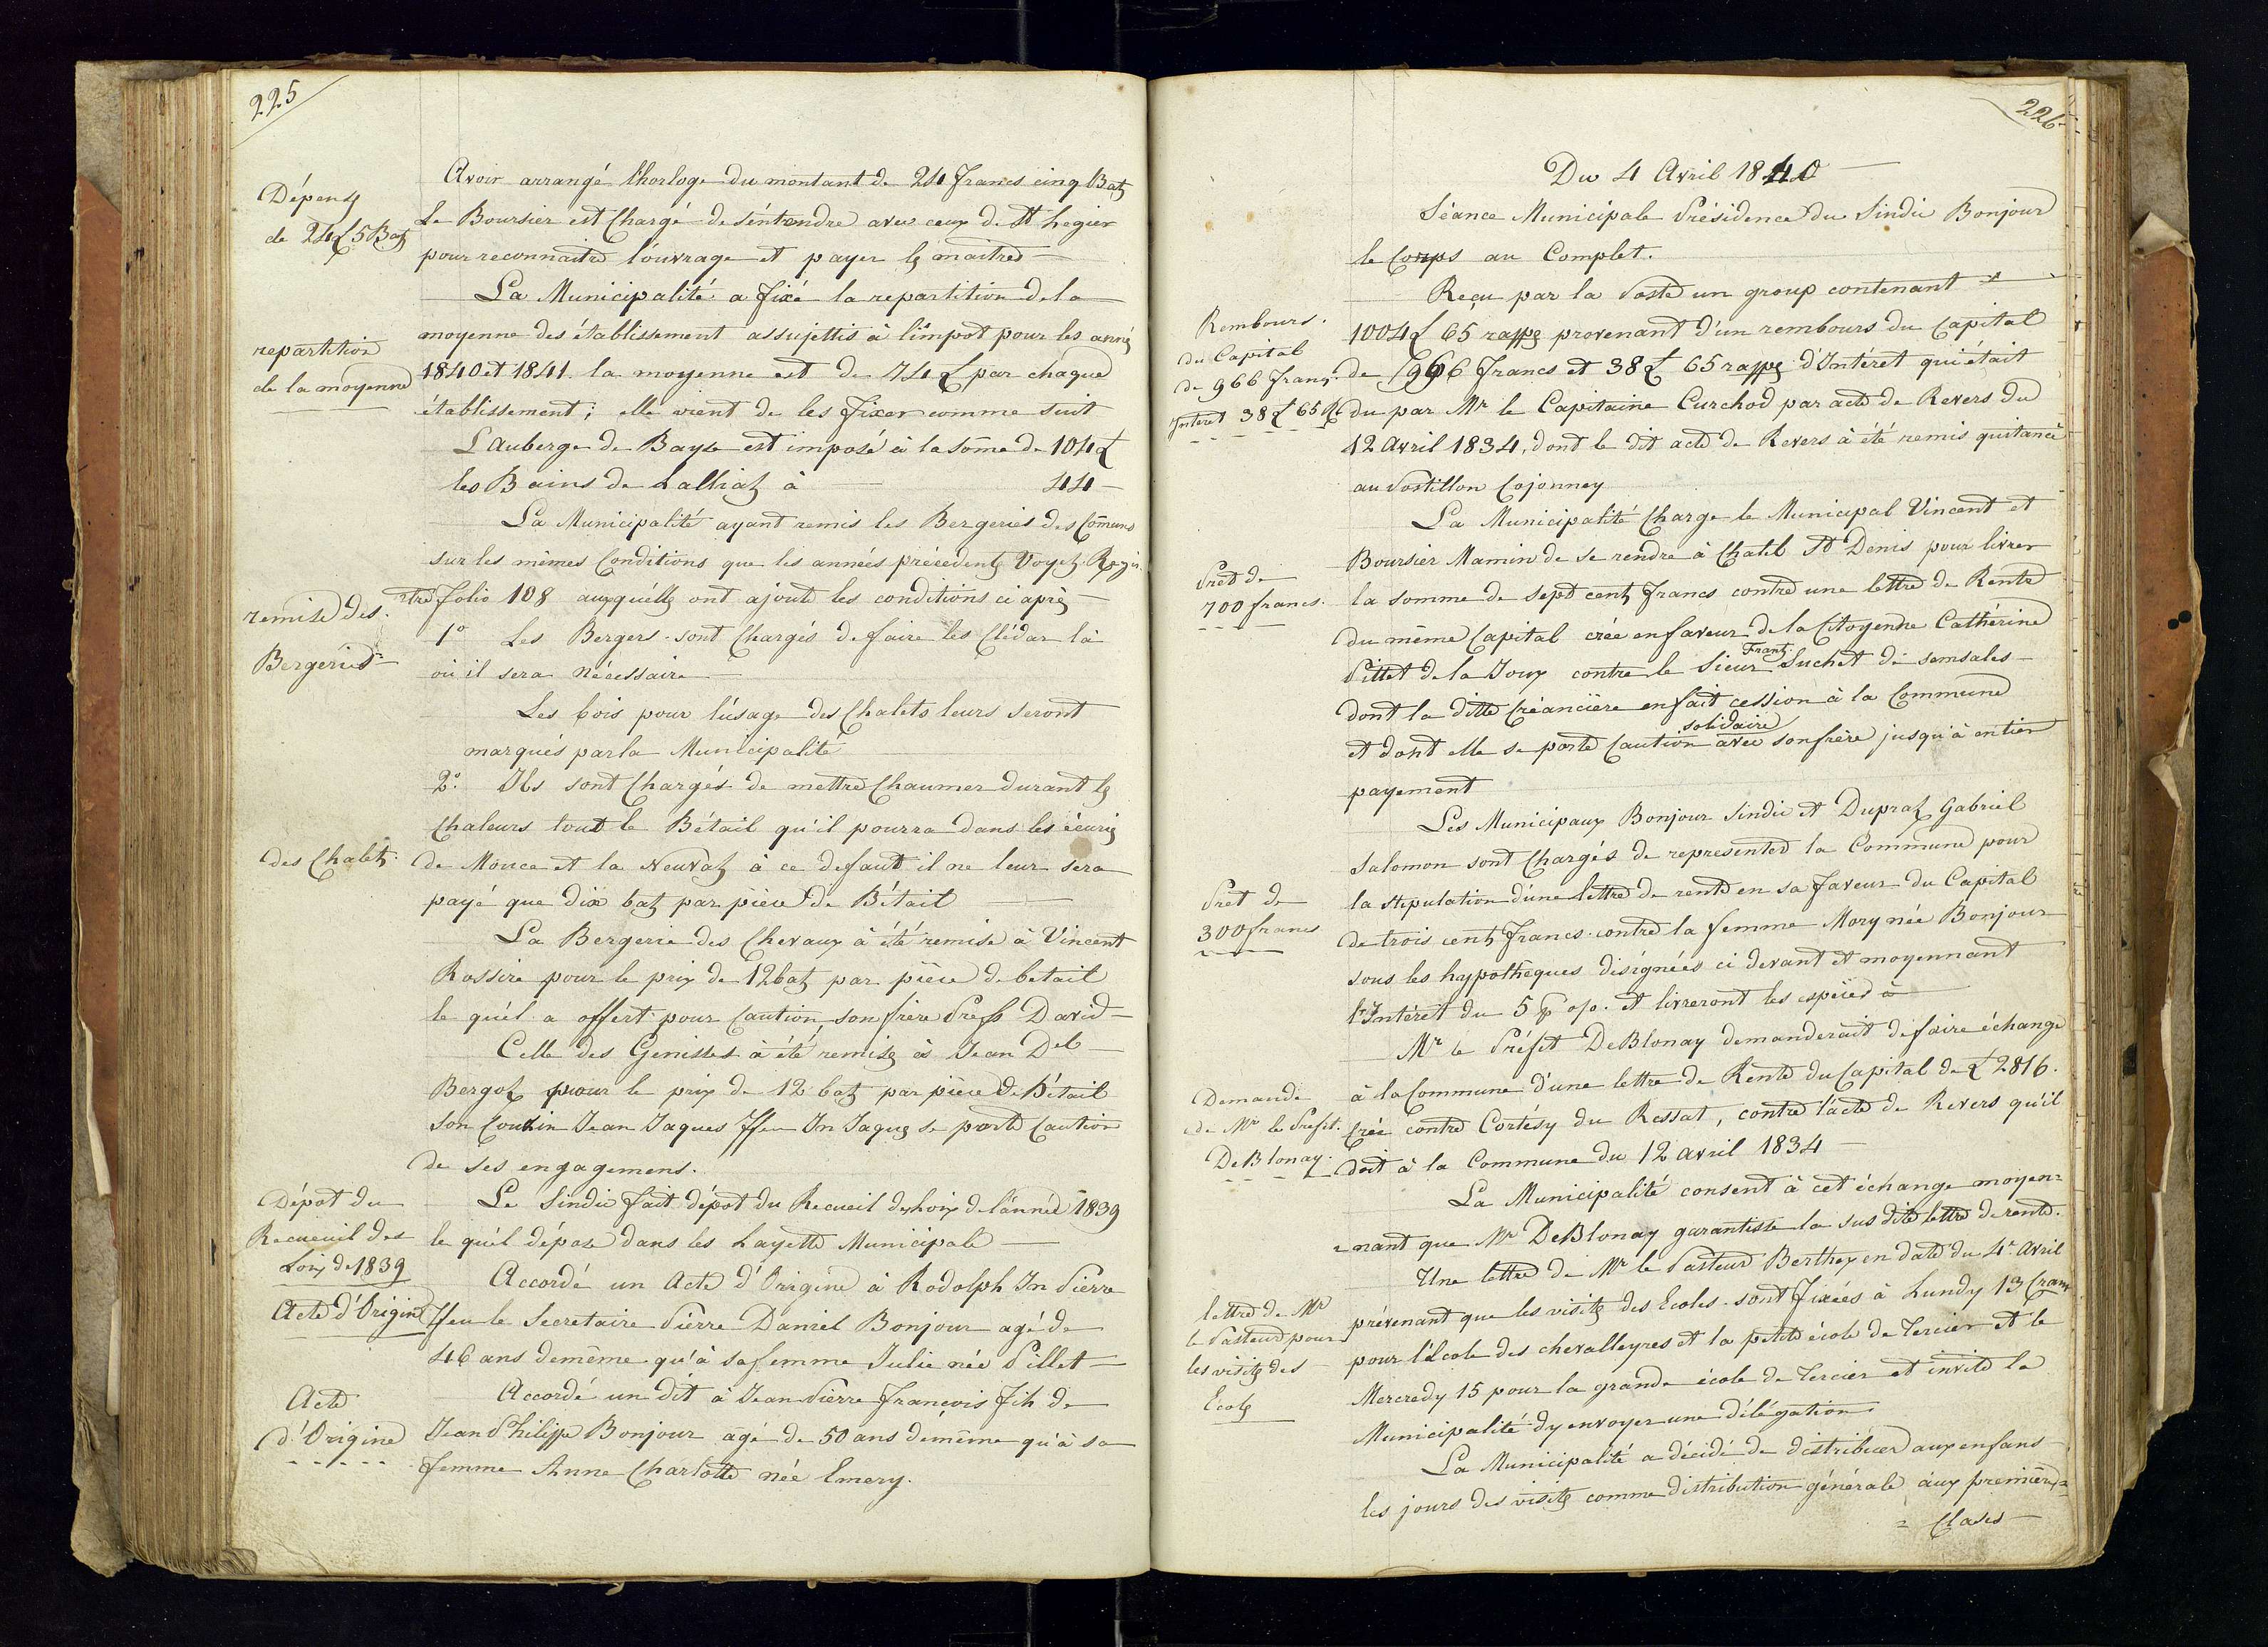 225
Avoir arrangé l'horloge du montant de 24 francs cinq Batz
Dépense
de 24£ 5 Batz
Le Boursier est Chargé de s'éntendre avec ceux de St Legier
pour reconnaitre l'ouvrage et payer le maitre
La Municipalité a fixé la repartition de la
moyenne des établissement assujettis à l'impot pour les année
repartition
de la moyenne
1840 et 1841 la moyenne est de 74 £ par chaque
établissement ; elle vient de les fixer comme suit
L'Auberge de Baye est imposé à la Some de 104 £
les Bains de Lalliaz à 44
La Municipalité ayant remis les Bergeries des Comuns
sur les mêmes Conditions que les années précédentes Voyez Regis
remise des
Bergeries
tre folio 108 auxquélls ont ajouté les conditions ci après
1° Les Bergers sont Chargés de faire les Clédar là
où il sera nécessaire
Les bois pour l'usage des Chalets leurs seront
marqués par la Municipalité
2° Ils sont Chargés de mettre Chaumer durant les
Chaleurs tout le Bétail qu'il pourra dans les écuries
des Chalets
de Mouce et la Neuvaz à ce defaut il ne leur sera
payé que dix batz par pièce de Bétail
La Bergerie des Chevaux à été remise à Vincent
Rossire pour le prix de 12 batz par pièce de betail
le quél a offert pour Caution son frère David
Celle des Genisses à été remise à Jean Del
Bergoz pour le prix de 12 batz par pièce de bétail
son Cousin Jean Jaques ffeu Jn Jaques se porte Caution
de ses engagemens.
Dépot du
Recueuil des
Loix de 1839
Le Sindic fait dépot du Recueil des Loix de l'année 1839
le quél dépose dans les Layette Municipale
Acte d'Origine
Accordé un Acte d'Origine à Rodolph Jn Pierre
ffeu le Secretaire Pierre Daniel Bonjour agé de
46 ans demême qu'à sa femme Julie née Pillet
Acte
d'Origine
Accordé un dit à Jean Pierre François fils de
Jean Philippe Bonjour agé de 50 ans demême qu'à sa
femme Anne Charlotte née Emery.
226
Du 4 Avril 1840
Séance Municipale Présidence du Sindic Bonjour
le Corps au Complet.
Reçu par la Poste un group contenant
Rembours.
du Capital
de 966 franc.
Intéret 38£ 65 R
1004£ 65 rappe provenant d'un rembours du Capital
de 966 francs et 38£ 65 rappe d'Intéret qui était
du par Mr le Capitaine Curchod par acte de Revers du
12 Avril 1834, dont le dit acte de Revers à été remis quitancé
au Postillon Cojonney
La Municipalité Charge le Municipal Vincent et
Boursier Mamin de se rendre à Chatel St Denis pour livrer
Prêt de
700 francs.
la somme de sept cents francs contre une lettre de Rente
du même Capital crée en faveur de la Citoyenne Cathérine
Pittet de la Joux contre le Sieur Franç Suchet de semsales
dont la ditte Créancière en fait cession à la Commune
et dont elle se porte Caution solidaire avec son frère jusqu'à entier
payement
Les Municipaux Bonjour Sindic et Dupraz Gabriel
Salomon sont Chargés de representer la Commune pour
Prêt de
300 francs
la stipulation d'une lettre de rente en sa faveur du Capital
de trois cents francs contre la femme Mory née Bonjour
sous les hypothèques disignées ci devant et moyennant
l'Intéret du 5 p o/o. et livreront les espèces à
Mr le Préfet DeBlonay demanderait de faire échange
Demande
de Mr le Prefet
DeBlonay.
à la Commune d'une lettre de Rente du Capital de £ 2816.
Crée contre Cortésy du Ressat, contre l'acte de Revers qu'il
doit à la Commune du 12 avril 1834
La Municipalité consent à cet échange moyen=
=nant que Mr DeBlonay garantisse la sus dite lettre de rente.
Une lettre de Mr le Pasteur Berthex en date du 4e avril
lettre de Mr
le Pasteur pour
les visites des
Ecoles
prévenant que les visites des Ecoles sont fixées à Lundy 13 Cran
pour l'école des chevalleyres et la petite école de Tercier et le
Mercredy 15 pour la grande école de Tercier et invite la
Municipalité d'y envoyer une délégation
La Municipalité a décidé de distribuer aux enfans
les jours des visites comme distribution générale aux premières
= Clases